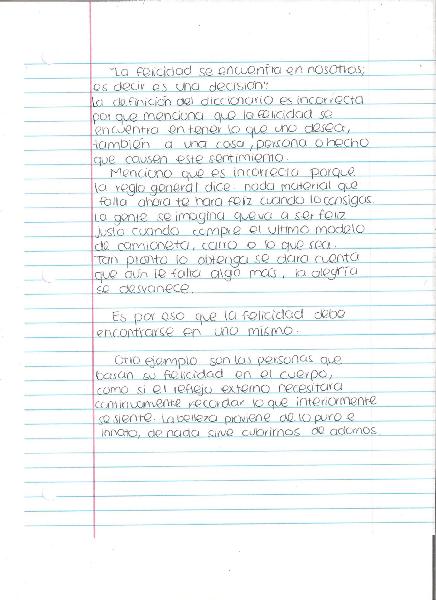 "La felicidad se encuentra en nosotros;
es decir es una decisión".
La definición del diccionario es incorrecta
porque menciona que la felicidad se
encuentra en tener lo que uno desea,
también a una cosa, persona o hecho
que causen este sentimiento.
Menciono que es incorrecta porque
la regla general dice: nada material que
falta ahora te hara feliz cuando lo consigas.
La gente se imagina que va a ser feliz
justo cuando compre el ultimo modelo
de camioneta, carro o lo que sea.
Tan pronto lo obtenga se dara cuenta
que aún le falta algo más, la alegría
se desvanece.
Es por eso que la felicidad debe
encontrarse en uno mismo.
Otro ejemplo son las personas que
basan su felicidad en el cuerpo,
como si el reflejo externo necesitara
continuamente recordar lo que interiormente
se siente. La belleza proviene de lo puro e
innato, de nada sirve cubrirnos de adornos